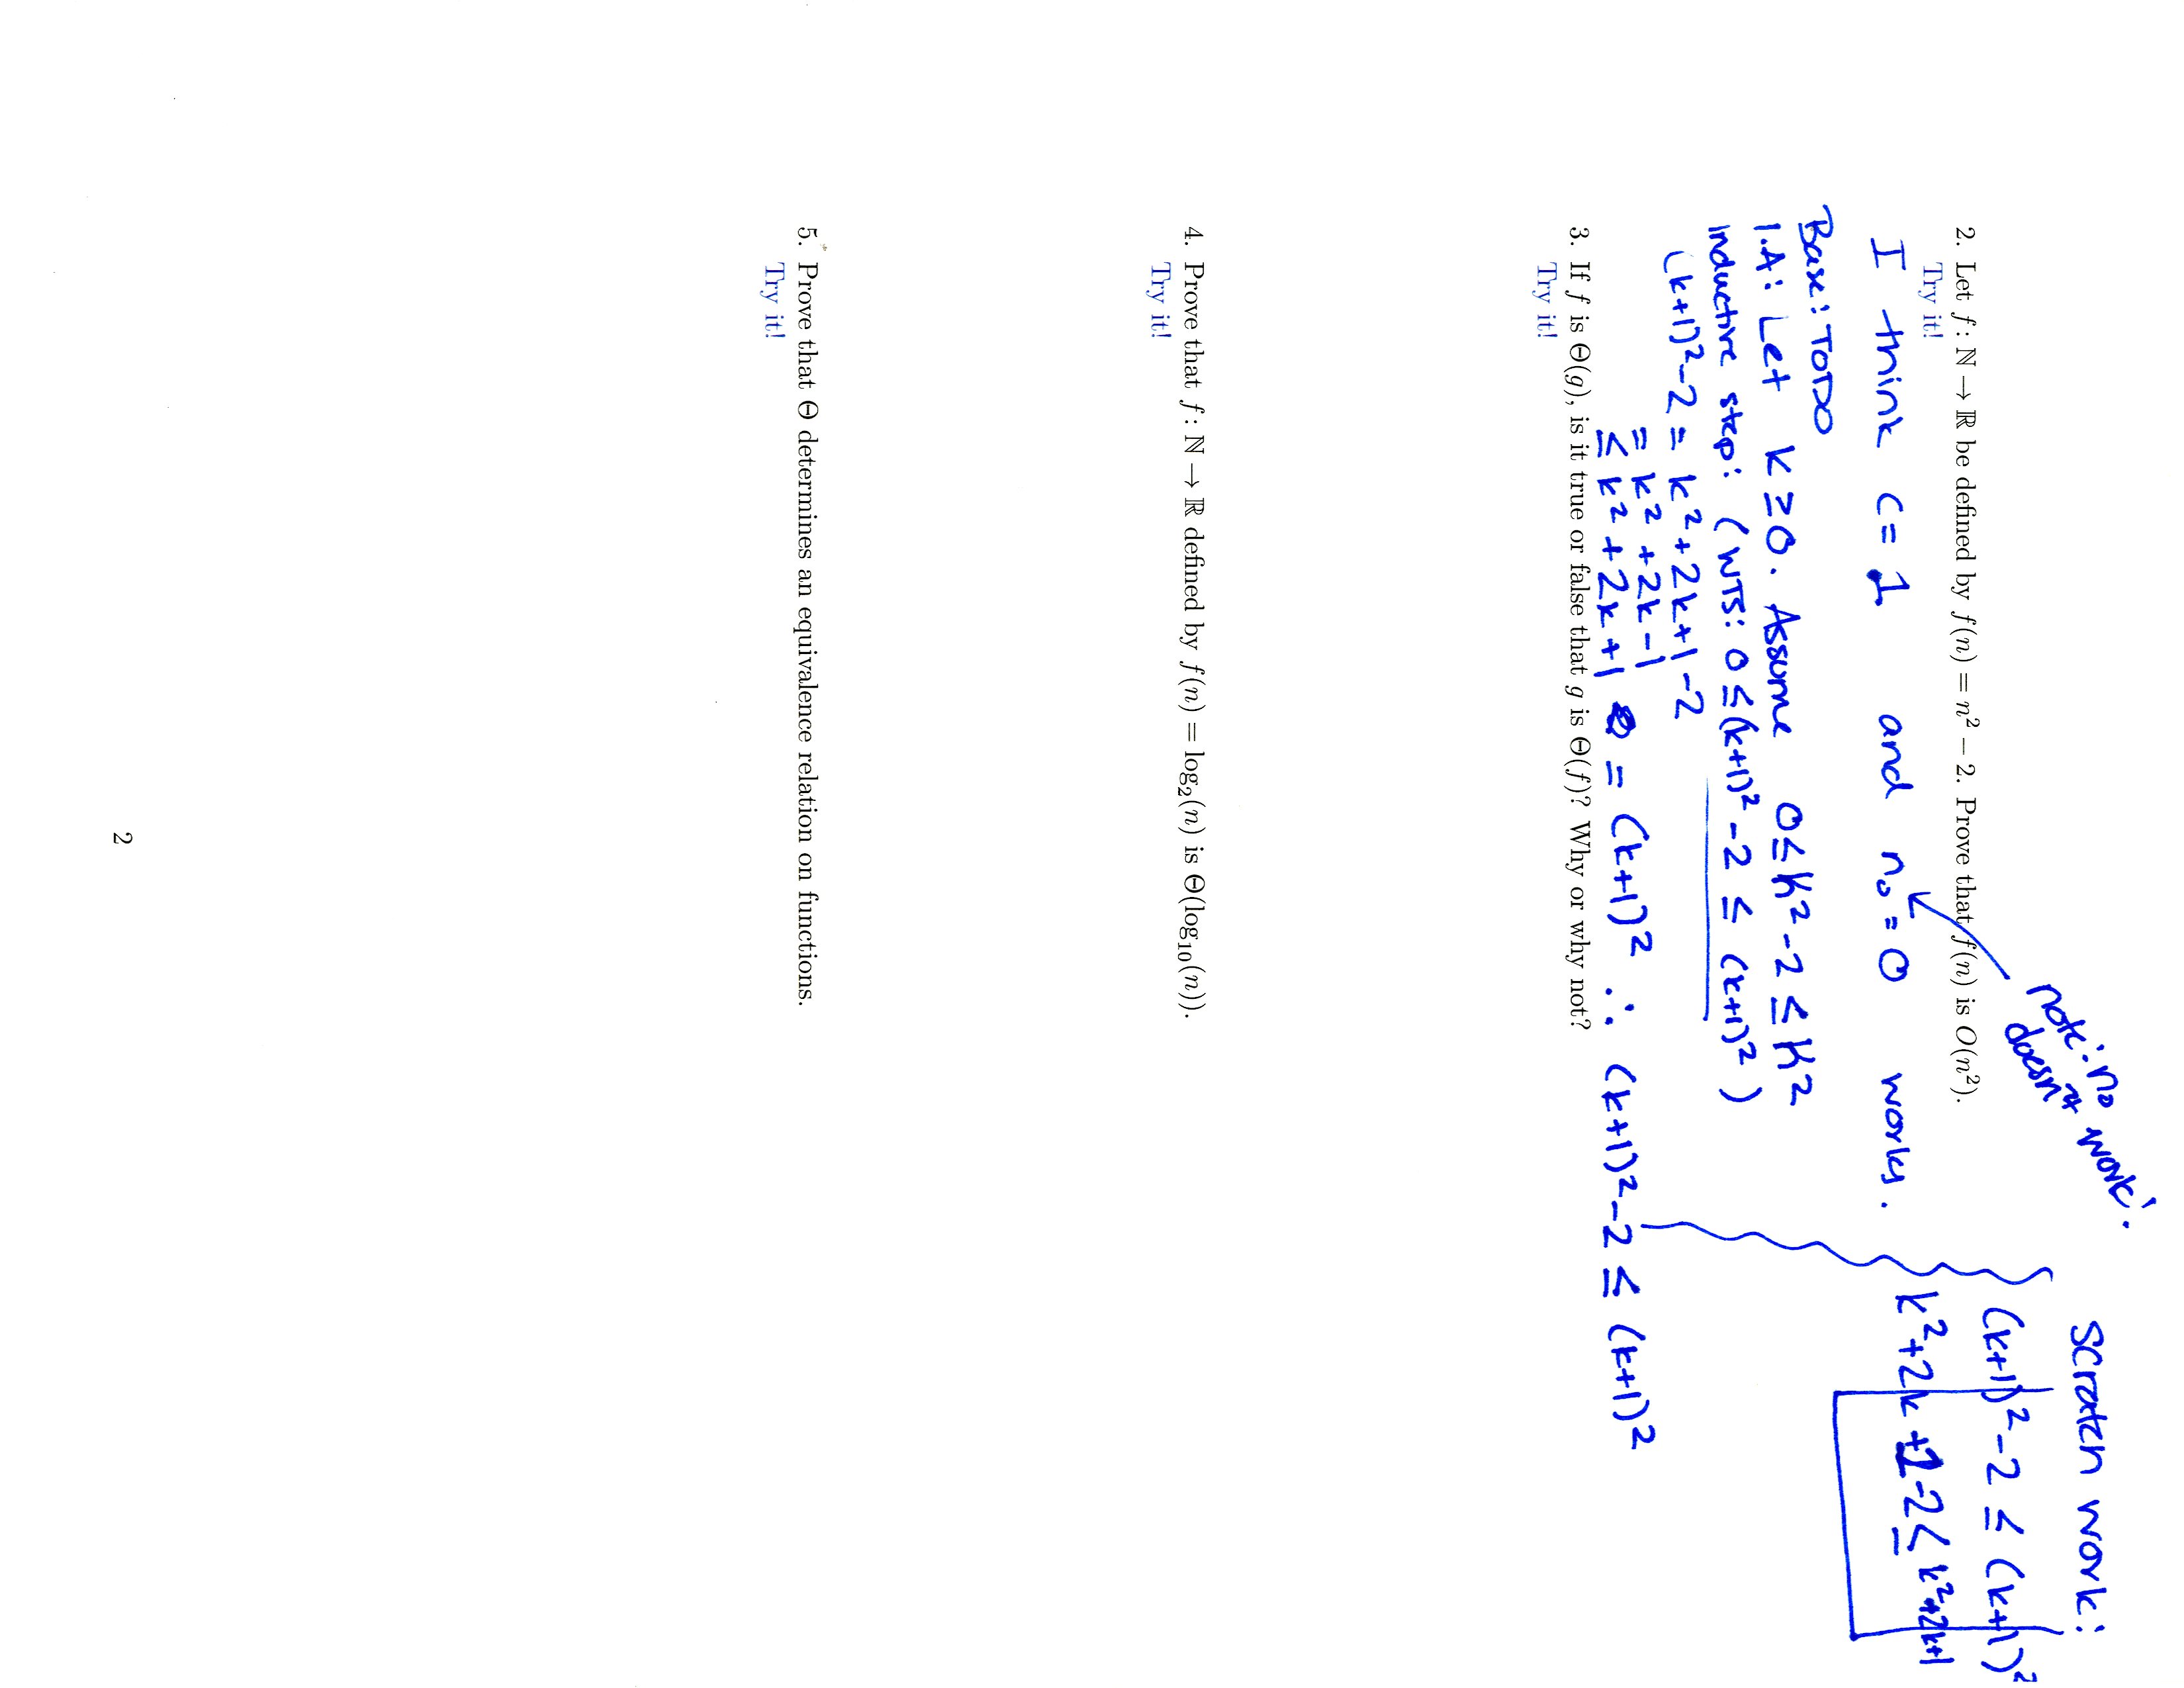 note: no
doesn't work!
scratch work:
(k+1)²-2 ≤ (k+1)²
k²+2k+1-2 ≤ k²+2k+1
2. Let f: ℕ → ℝ be defined by f(n) = n² − 2. Prove that f(n) is O(n²).
Try it!
I think c=1 and n₀=0 works.
Base: TODO
I.A: Let k ≥ 0. Assume 0 ≤ k²-2 ≤ k²
Inductive step: (WTS: 0 ≤ (k+1)²-2 ≤ (k+1)²)
(k+1)²-2 = k²+2k+1-2
= k²+2k-1
≤ k²+2k+1 = (k+1)² ∴ (k+1)²-2 ≤ (k+1)²
3. If f is Θ(g), is it true or false that g is Θ(f)? Why or why not?
Try it!
4. Prove that f: ℕ → ℝ defined by f(n) = log₂(n) is Θ(log₁₀(n)).
Try it!
5. Prove that Θ determines an equivalence relation on functions.
Try it!
2